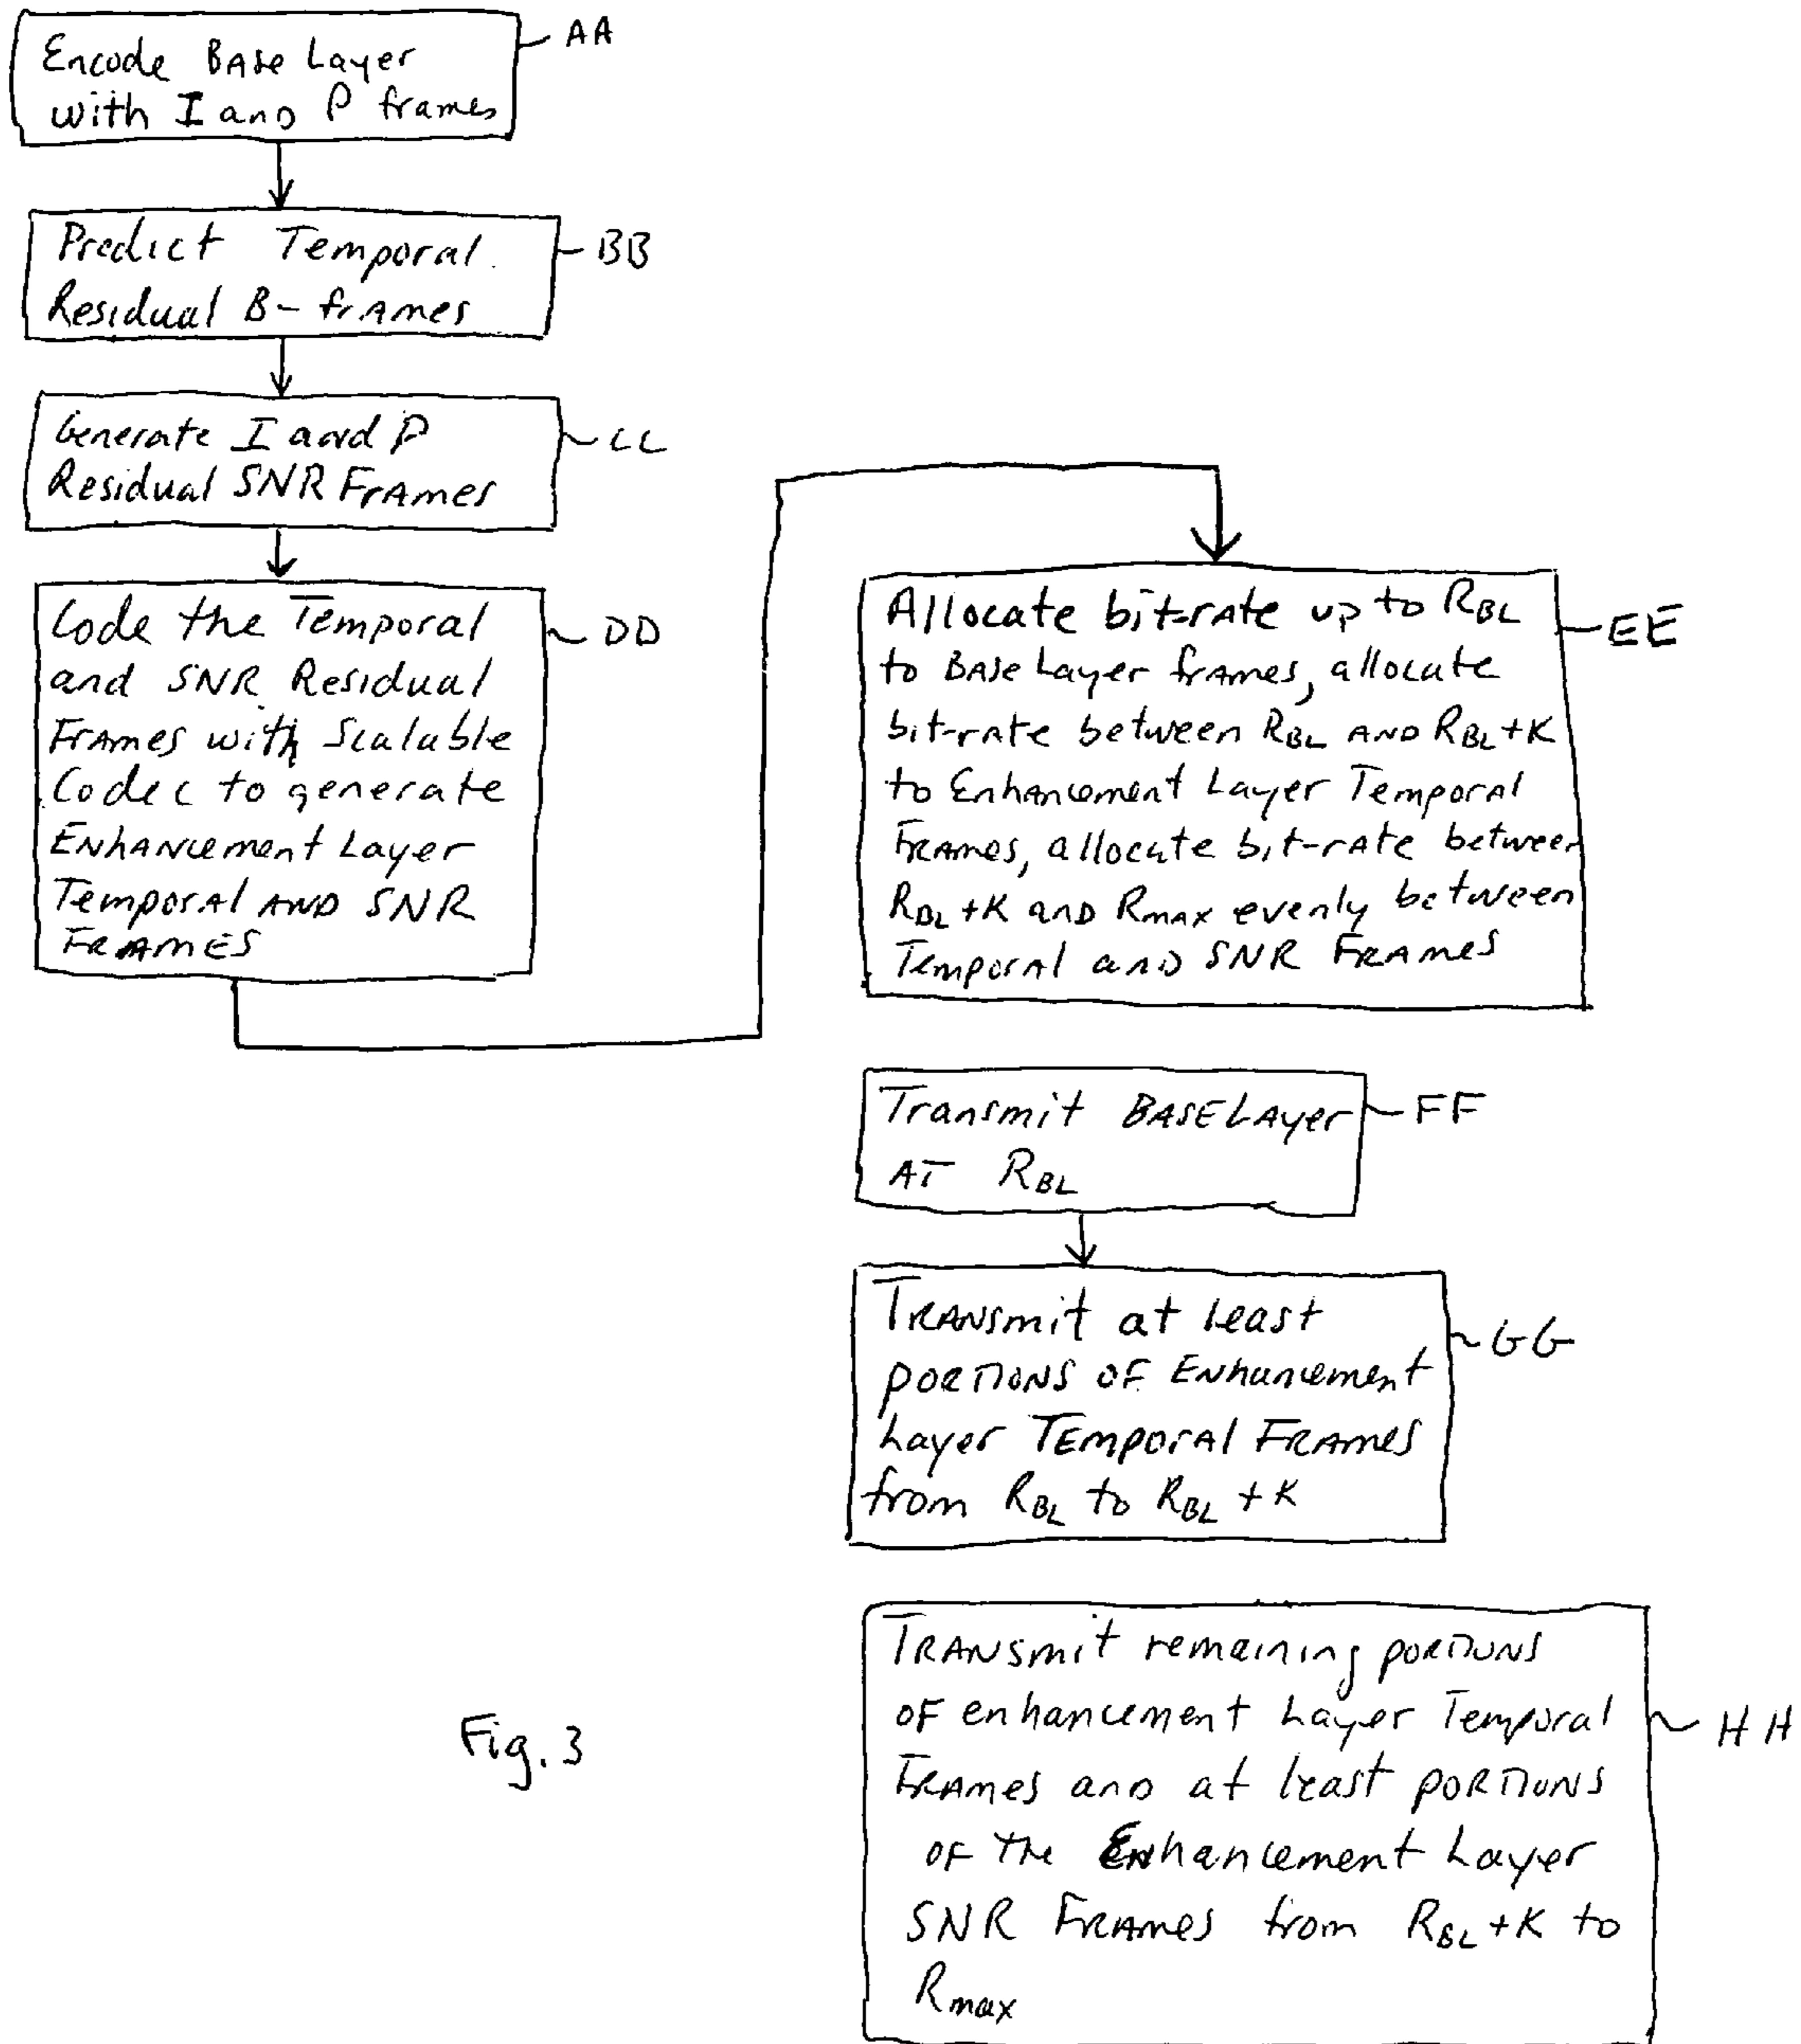 Encode Base Layer AA
with I and P frames
Predict Temporal BB
Residual B-frames
Generate I and P CC
Residual SNR Frames
Code the Temporal DD
and SNR Residual
Frames with Scalable
Codec to generate
Enhancement Layer
Temporal AND SNR
FRAMES
Allocate bit-rate up to RBL EE
to Base Layer frames, allocate
bit-rate between RBL AND RBL+K
to Enhancement Layer Temporal
Frames, allocate bit-rate between
RBL+K and Rmax evenly between
Temporal and SNR Frames
Transmit BASE Layer FF
AT RBL
Transmit at least GG
portions of Enhancement
Layer Temporal Frames
from RBL to RBL+K
Transmit remaining portions
of enhancement Layer Temporal HH
Frames and at least portions
of the Enhancement Layer
SNR Frames from RBL+K to
Rmax
Fig. 3